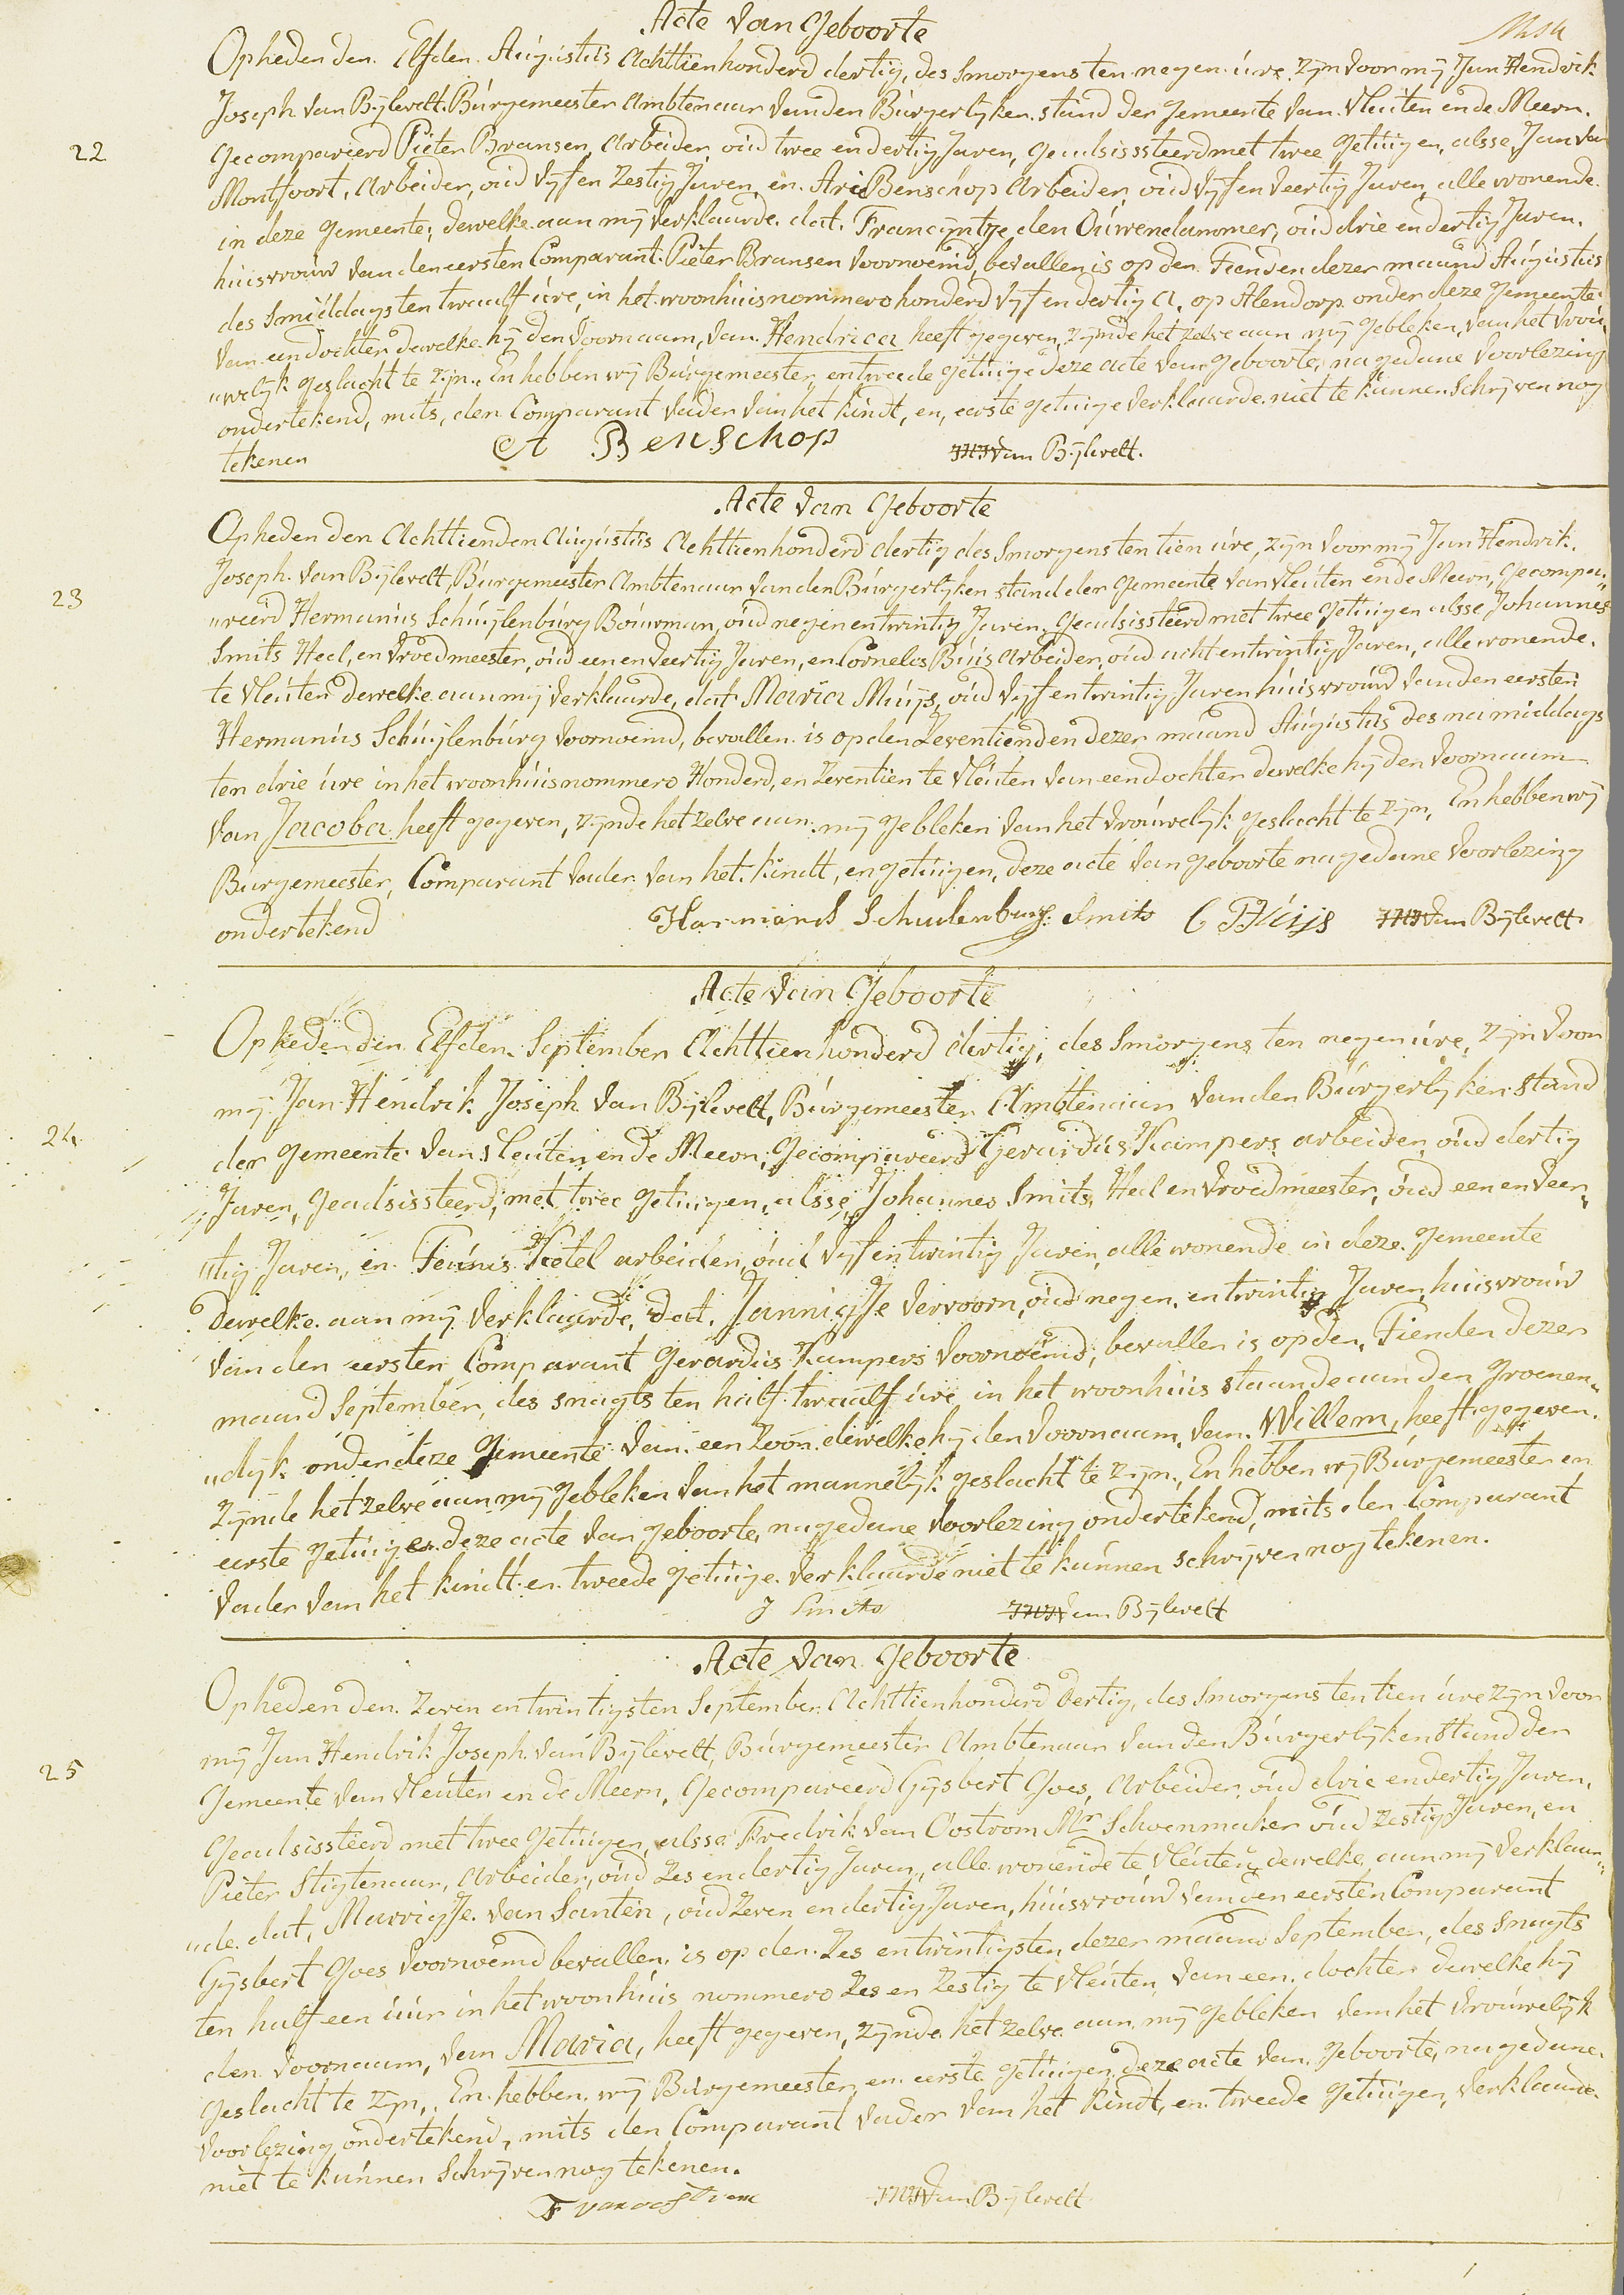 Acte van Geboorte
22
Opheden den Elfden Augustus Achttienhonderd dertig, des Smorgens ten negen ure, zyn voor mÿ Jan Hendrik
Joseph van Bÿlevelt, Burgemeester Ambtenaar van den Burgerlyken stand der Gemeente van Vleuten en de Meern,
Gecompareerd Pieter Bransen, Arbeider, oud twee en dertig Jaren, Geadsissteerd met twee Getuigen, alsse, Jan van
Montfoort, Arbeider, oud vyf en Zestig Jaren, en Arie Benschop Arbeider, oud vyf en veertig Jaren, alle wonende
in deze Gemeente, dewelke aan mÿ verklaarde, dat, Francyntje den Ouwendammer, oud drie en dertig Jaren,
huisvrouw van den eersten Comparant Pieter Bransen voornoemd, bevallen is op den Tienden dezer maand Augustus
des Smiddags ten twaalf ure, in het woonhuis nommero honderd vyf en dertig A, op Alendorp onder deze Gemeente
van een dochter dewelke hÿ den voornaam, van Hendrica heeft gegeven, zynde het zelve aan mÿ gebleken, van het vrou„
„welyk geslacht te zyn., En hebben wÿ Burgemeester, en tweede getuige deze acte van geboorte, na gedane voorlezing
ondertekend, mits, den Comparant vader van het kindt, en, eerste getuige verklaarde niet te kunnen Schryven nog
tekenen
A Benschop JHJ van Bÿlevelt.
Acte van Geboorte
23
Opheden den Achttienden Augustus Achttienhonderd dertig, des Smorgens ten tien ure, zyn voor mÿ Jan Hendrik
Joseph van Bÿlevelt, Burgemeester Ambtenaar van den Burgerlyken stand der Gemeente van Vleuten en de Meern, Gecompa„
„reerd Hermanus Schuÿlenburg Bouwman, oud negen en twintig Jaren, Geadsissteerd met twee Getuigen alsse, Johannes
Smits Heel, en Vroedmeester, oud een en veertig Jaren, en Cornelos Buis Arbeider, oud acht en twintig Jaren, alle wonende
te Vleuten dewelke aan mÿ verklaarde, dat Maria Muÿs, oud vyf en twintig Jaren huisvrouw van den eersten
Hermanus Schuÿlenburg voornoemd, bevallen is op den Zeventienden dezer maand Augustus des namiddags
ten drie ure in het woonhuis nommero Honderd, en Zeventien te Vleuten van een dochter dewelke hÿ den voornaam
van Jacoba heeft gegeven, zynde het zelve aan mÿ gebleken van het vrouwelyk geslacht te zyn, En hebben wÿ
Burgemeester, Comparant vader van het kindt, en getuigen, deze acte van geboorte na gedane voorlezing
ondertekend
Harmanus Schulenburg Smits JHJ van Bÿlevelt
Acte van Geboorte
24
Opheden den Elfden September Achttienhonderd dertig, des Smorgens ten negen ure, zyn voor
mÿ Jan Hendrik Joseph van Bÿlevelt, Burgemeester Ambtenaar van den Burgerlyken stand
der Gemeente van Vleuten en de Meern, Gecompareerd Gerardus Kampers arbeider, oud dertig
Jaren, Geadsissteerd, met twee Getuigen, alsse, Johannes Smits, Heel en Vroedmeester, oud een en veer„
„tig Jaren, en Teunis Kotel arbeider, oud vyf en twintig Jaren, alle wonende in deze Gemeente
dewelke aan mÿ verklaarde, dat, Jannigje Vervoorn, oud negen en twintig Jaren, huisvrouw
van den eersten Comparant Gerardus Kampers voornoemd, bevallen is op den Tienden dezer
maand September, des snagts ten half twaalf ure in het woonhuis staande aan den Groenen„
„dyk onder deze Gemeente van een Zoon dewelke hÿ den voornaam van Willem, heeft gegeven,
zynde het zelve aan mÿ gebleken van het mannelyk geslacht te zyn., En hebben wÿ Burgemeester en
eerste getuigen deze acte van geboorte, na gedane voorlezing ondertekend, mits den Comparant
vader van het kindt en tweede getuige verklaarde niet te kunnen schryven nog tekenen.
J Smits JHJ van Bÿlevelt
Acte van Geboorte
25
Opheden den Zeven en twintigsten September Achttienhonderd dertig, des Smorgens ten tien ure zyn voor
mÿ Jan Hendrik Joseph van Bÿlevelt, Burgemeester Ambtenaar van den Burgerlyken Stand der
Gemeente van Vleuten en de Meern, Gecompareerd Gysbert Goes, Arbeider, oud drie en dertig Jaren,
Geadsissteerd met twee Getuigen, alsse Fredrik van Oostrom Mr Schoenmaker oud Zestig Jaren, en
Pieter Stigtenaar, Arbeider, oud Zes en dertig Jaren, alle wonende te Vleuten, dewelke aan mÿ verklaar„
„de dat, Marrigje van Santen, oud Zeven en dertig Jaren, huisvrouw van den eersten Comparant
Gysbert Goes, voornoemd bevallen is op den Zes en twintigsten dezer maand September, des Snagts
ten half een uur in het woonhuis nommero Zes en Zestig te Vleuten, van een dochter dewelke hÿ
den voornaam, van Maria, heeft gegeven, zynde het zelve aan mÿ gebleken van het vrouwelyk
geslacht te zyn., En hebben wÿ Burgemeester, en eerste getuigen, deze acte van geboorte, na gedane
voorlezing ondertekend, mits den Comparant vader van het kindt, en tweede getuigen, verklaarde
niet te kunnen Schryven nog tekenen.
F van oostrom JHJ van Bÿlevelt